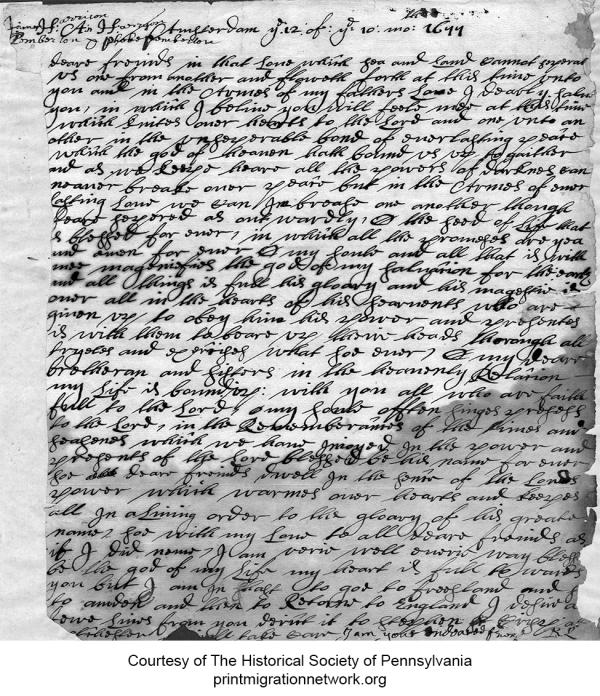 James Harrison
An Harrison Amsterdam ye 12 of ye 10 mo: 1677
Pemberton & Phebe Pemberton
deare freinds in that Love which sea and Land Cannot seperat
us one from another and floweth forth at this time unto
you and in the Armes of my fathers Love I dearly salut
you, in which I beliue you will feele mee at this time
which knites ouer hearts to the Lord and one unto an
other, in the unseperable bond of euerlasting peace
which the god of heauen hath bound us up to gaither
and as we keepe heare all the powers of darknes can
neauer breake ouer peace but in the Armes of euer
lasting Loue we can Imbrease one another though
seperated as out wardly, O the seed of Life that
is blessed for euer, in which all the promeses are yea
and amen for euer O my soule and all that is with
mee magenifies the god of my saluation for the earth
and all things is full his gloary and his magestie is
ouer all in the hearts of his searuents who are
giuen up to obey him his power and presentes
is with them to beare up theire heads thorough all
tryeles and exercises what soe euer, O my deare
bretheran and sisters in the heauenly Relation
my Life is bound up: with you all who are faith
full to the Lord, o my soule offten singes praises
to the Lord, in the Rememberances of the times and
seasones which we haue Injoyed In the power and
presents of the Lord blessed be his name for euer
soe deare freinds dwell In the sence of the Lords
power which warmes ouer hearts and keepes
all In a Liuing order to the gloary of his greate
name, soe with my Loue to all deare freinds as
if I did name, I am verie well euerie way bless
be the god of my Life my heart is full to wards
you but I am In hast to goe to freesland and
to amden and then to Retorne to England I desire a
fewe Lines from you derict it to Stephen Crisp at
Colchester will take Care I am your endeared freind RJ
Courtesy of The Historical Society of Pennsylvania
printmigrationnetwork.org